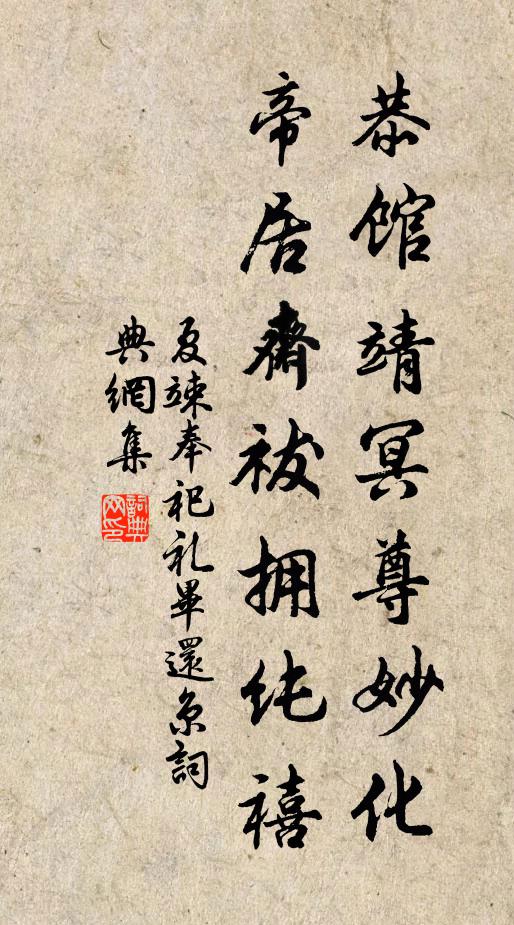 恭馆靖冥尊妙化
帝居斋祓拥纯禧
夏竦奉祀礼畢還京詞
典網集
詞典網印